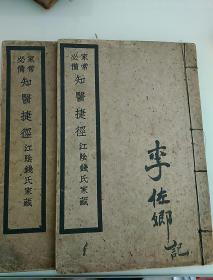 家常
必備
知醫捷徑
江陰錢氏家藏
李佐卿
記
家常
必備
知醫捷徑
江陰錢氏家藏